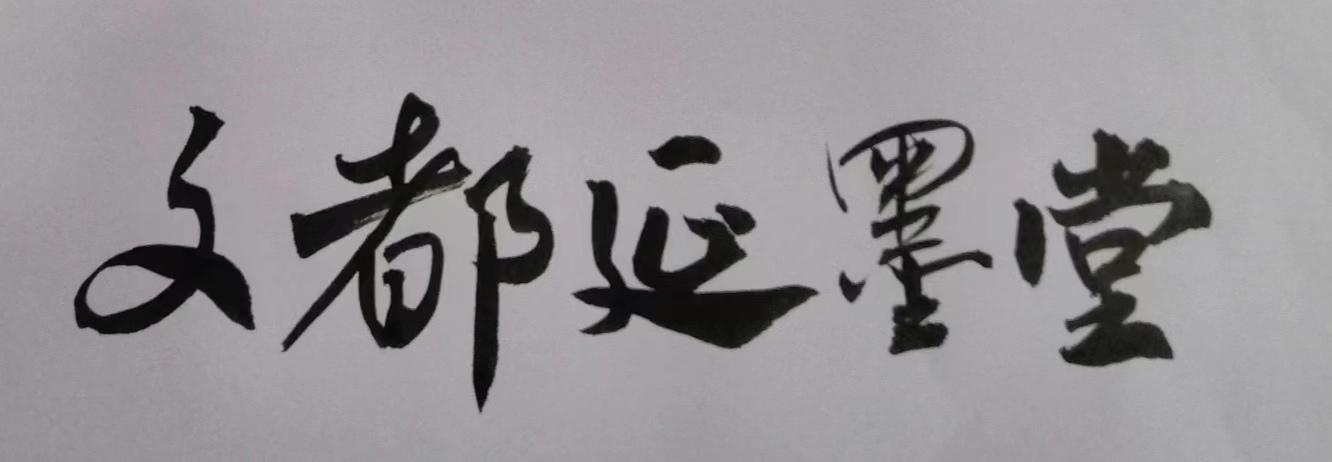 文都延墨堂